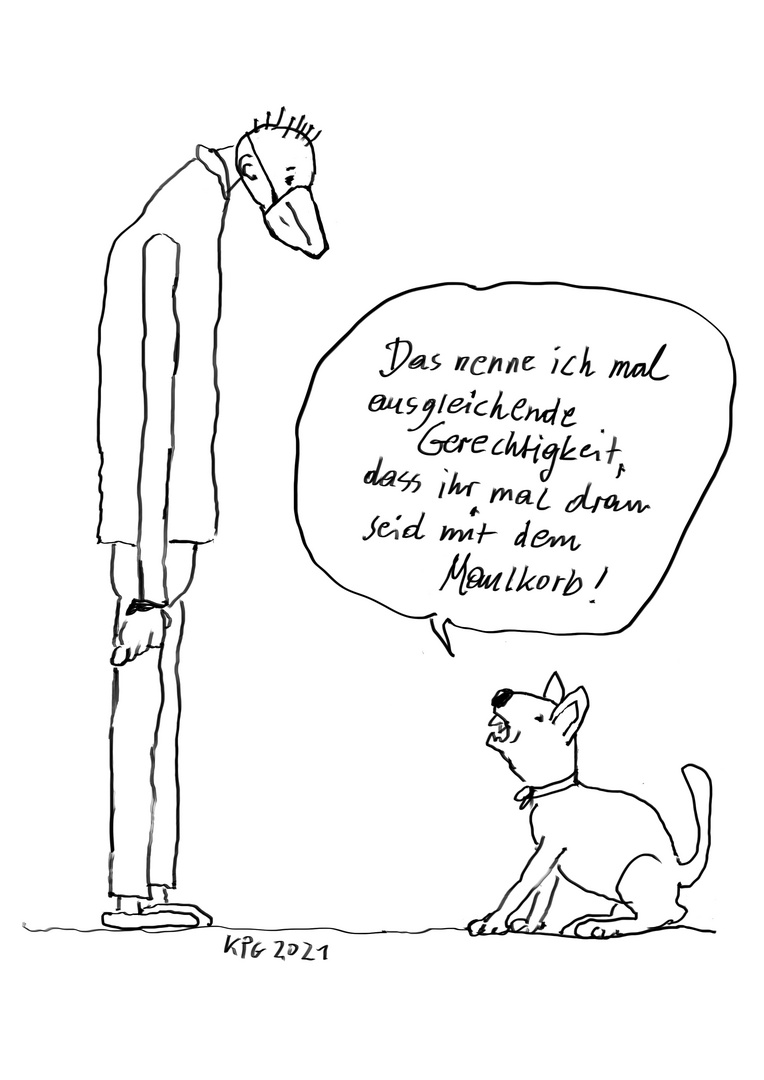 Das nenne ich mal
ausgleichende
Gerechtigkeit,
dass ihr mal dran
seid mit dem
Maulkorb!
KPG 2021